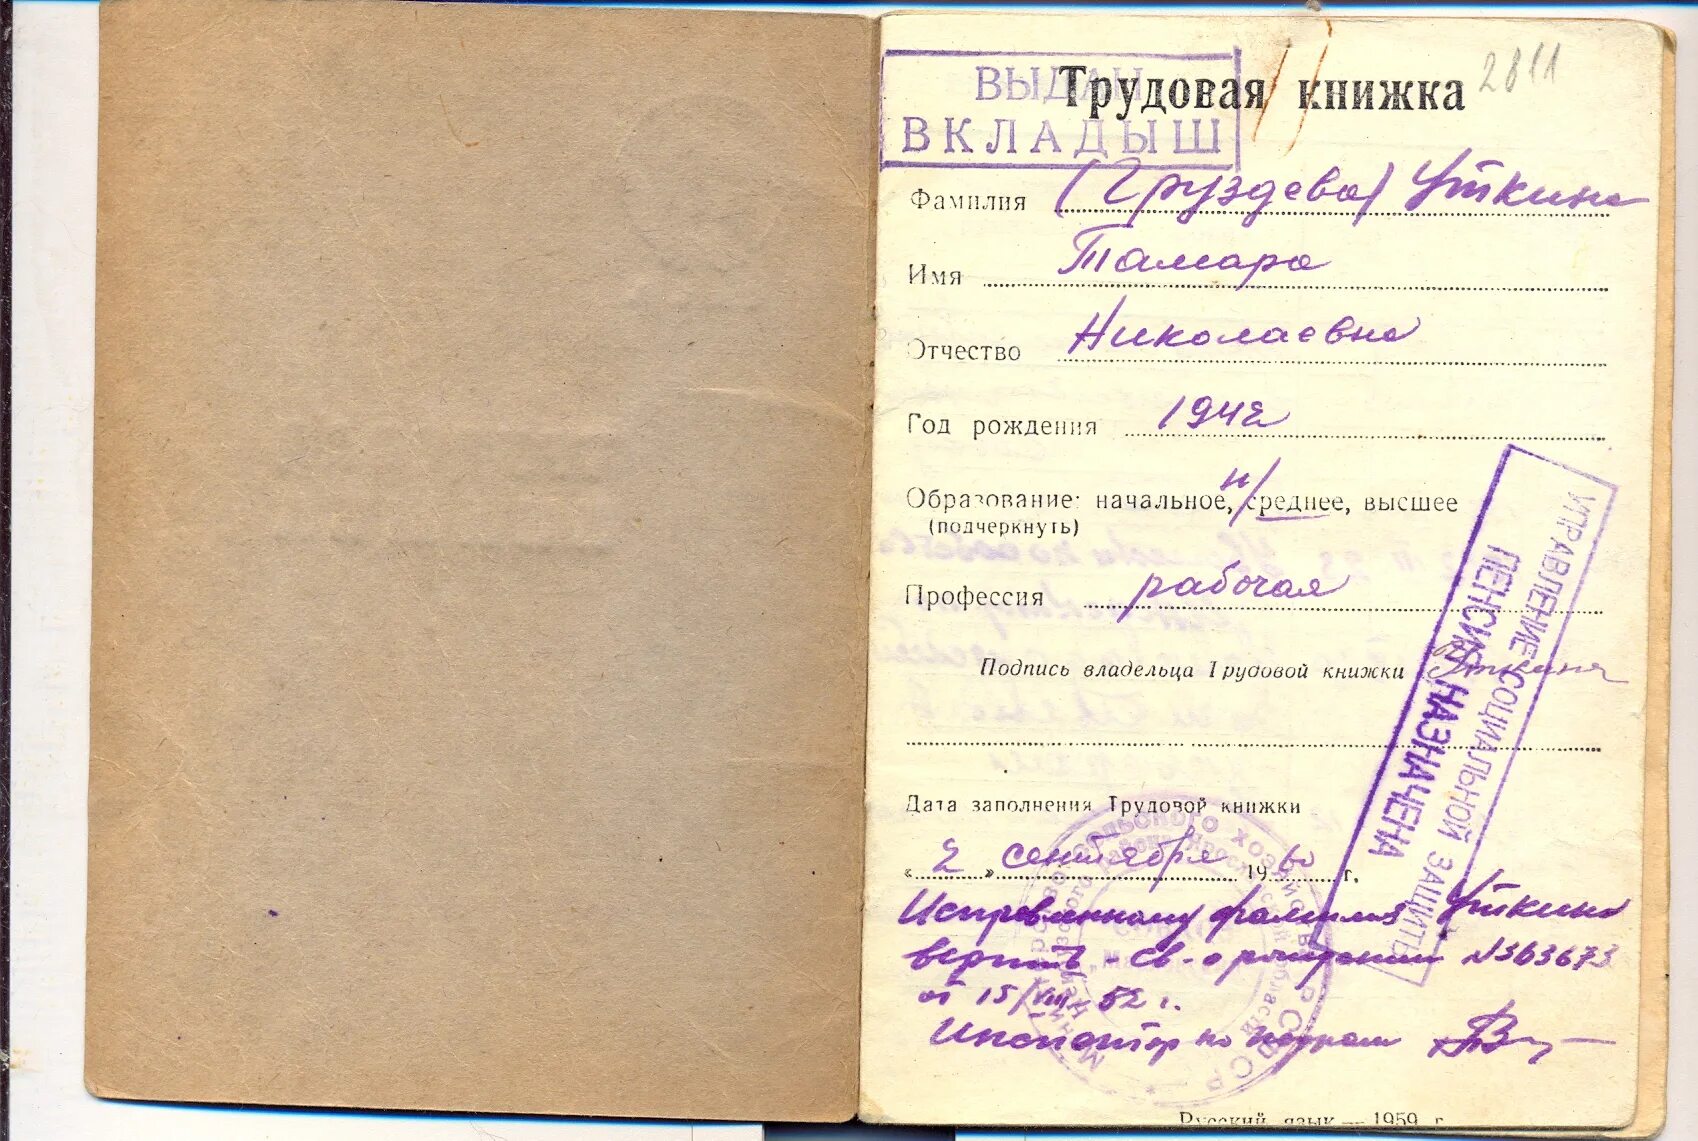 2811
Трудовая книжка
ВЫДАН
ВКЛАДЫШ
Фамилия (Груздева) Уткина
Имя Тамара
Отчество Николаевна
Год рождения 1942
Образование: начальное, н/среднее, высшее
(подчеркнуть)
Профессия рабочая
Подпись владельца Трудовой книжки Уткина
УПРАВЛЕНИЕ СОЦИАЛЬНОЙ ЗАЩИТЫ
ПЕНСИЯ НАЗНАЧЕНА
Дата заполнения Трудовой книжки
« 2 » сентября 1960 г.
Исправленному фамилия Уткина
верить - св-о рождении N363673
от 15/VIII-52 г.
Инспектор по кадрам
сельского хозяйства РСФСР
Русский язык — 1959 г.